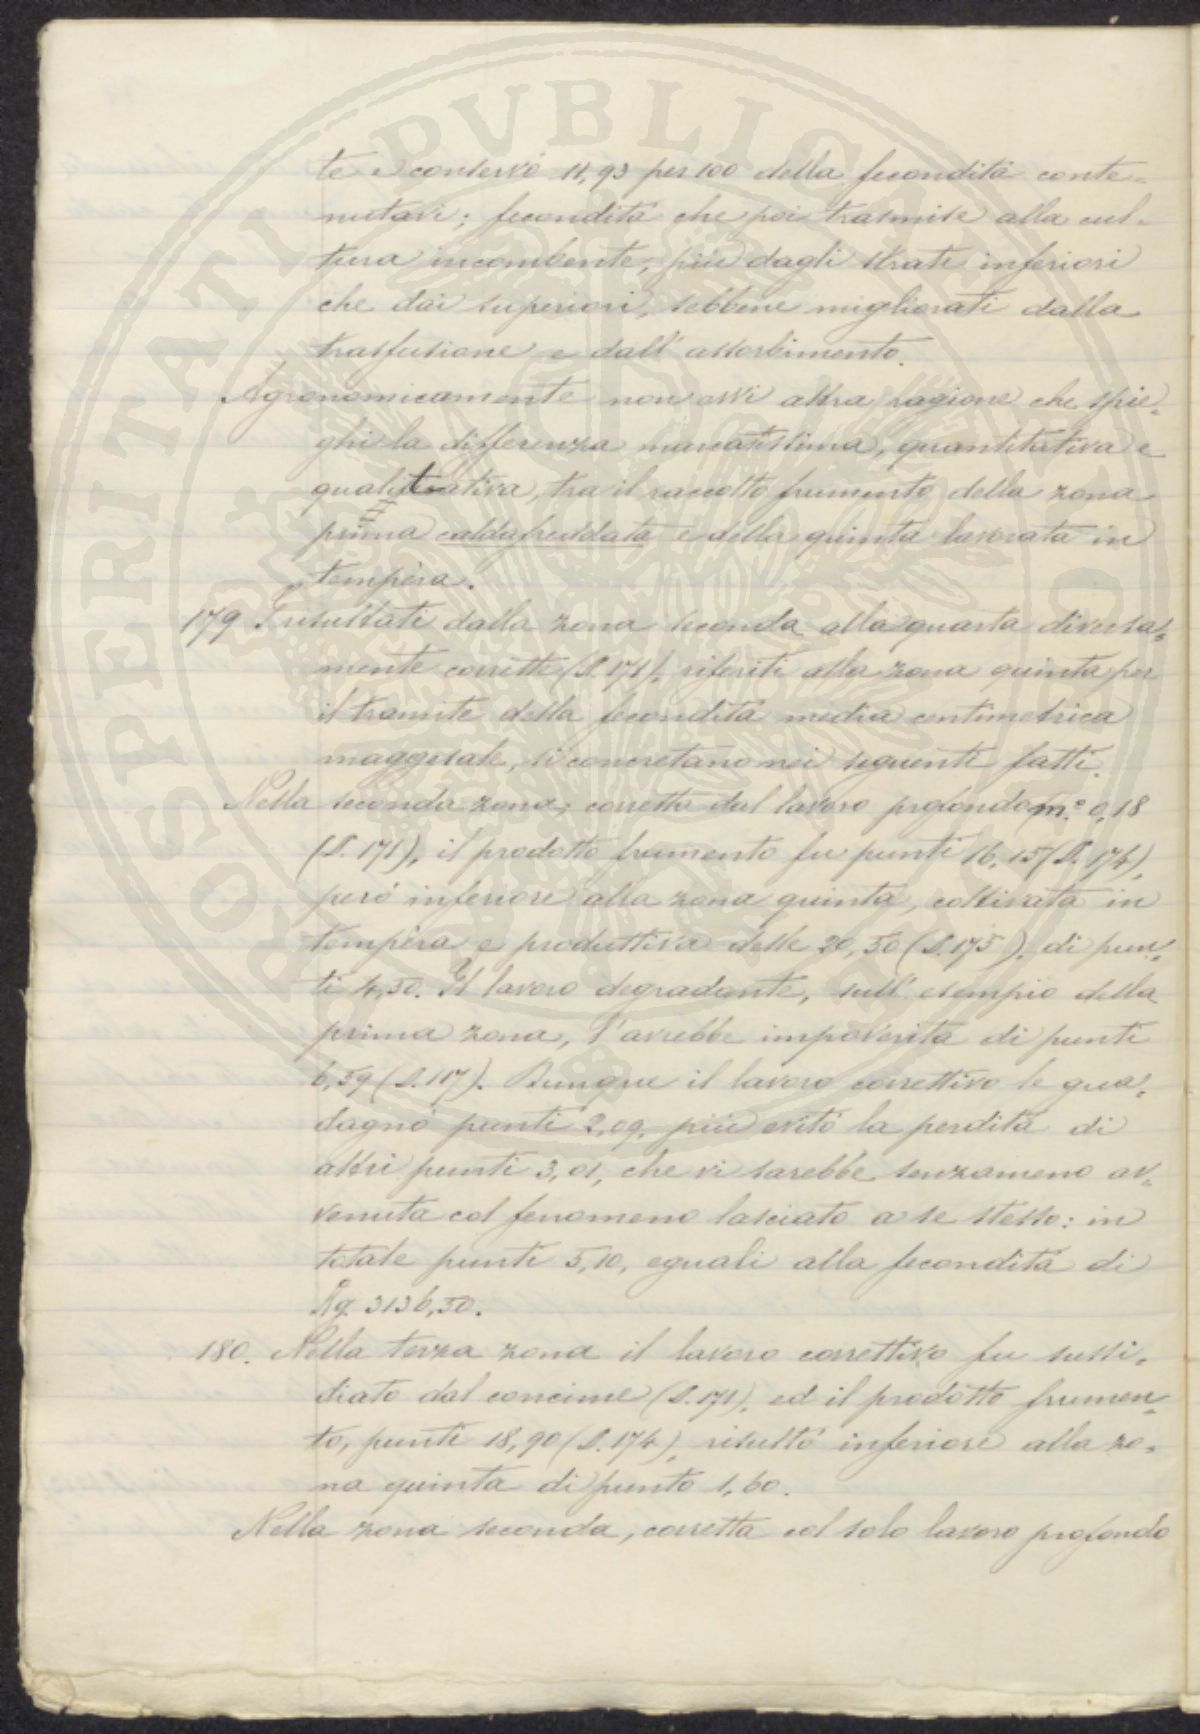 te e conservò 11,93 per 100 della fecondità conte-
nutavi; fecondità che poi trasmise alla cul-
tura incombente, più dagli strati inferiori
che dai superiori, sebbene migliorati dalla
trasfusione e dall'assorbimento.
Agronomicamente non evvi altra ragione che spie-
ghi la differenza marcatissima, quantitativa e
qualitativa, tra il raccolto frumento della zona
prima caldafreddata e della quinta lavorata in
tempèra.
179 I risultati dalla zona seconda alla quarta diversa-
mente corrette (§. 171), riferiti alla zona quinta per
il tramite della fecondità media centimetrica
maggesale, si concretano nei seguenti fatti.
Nella seconda zona, corretta dal lavoro profondo m.º 0,18
(§. 171), il prodotto frumento fu punti 16,15 (§. 174),
però inferiore alla zona quinta, coltivata in
tempèra e produttiva delle 20,50 (§. 175), di pun-
ti 4,50. Il lavoro degradante, sull'esempio della
prima zona, l'avrebbe impoverita di punti
6,59 (§. 117). Dunque il lavoro correttivo le gua-
dagnò punti 2,09, più evitò la perdita di
altri punti 3,01, che vi sarebbe senzameno av-
venuta col fenomeno lasciato a se stesso: in
totale punti 5,10, eguali alla fecondità di
Kg. 3136,50.
180. Nella terza zona il lavoro correttivo fu sussi-
diato dal concime (§. 171), ed il prodotto frumen-
to, punti 18,90 (§. 174), risultò inferiore alla zo-
na quinta di punto 1,60.
Nella zona seconda, corretta col solo lavoro profondo
PROSPERITATI PVBLICAE